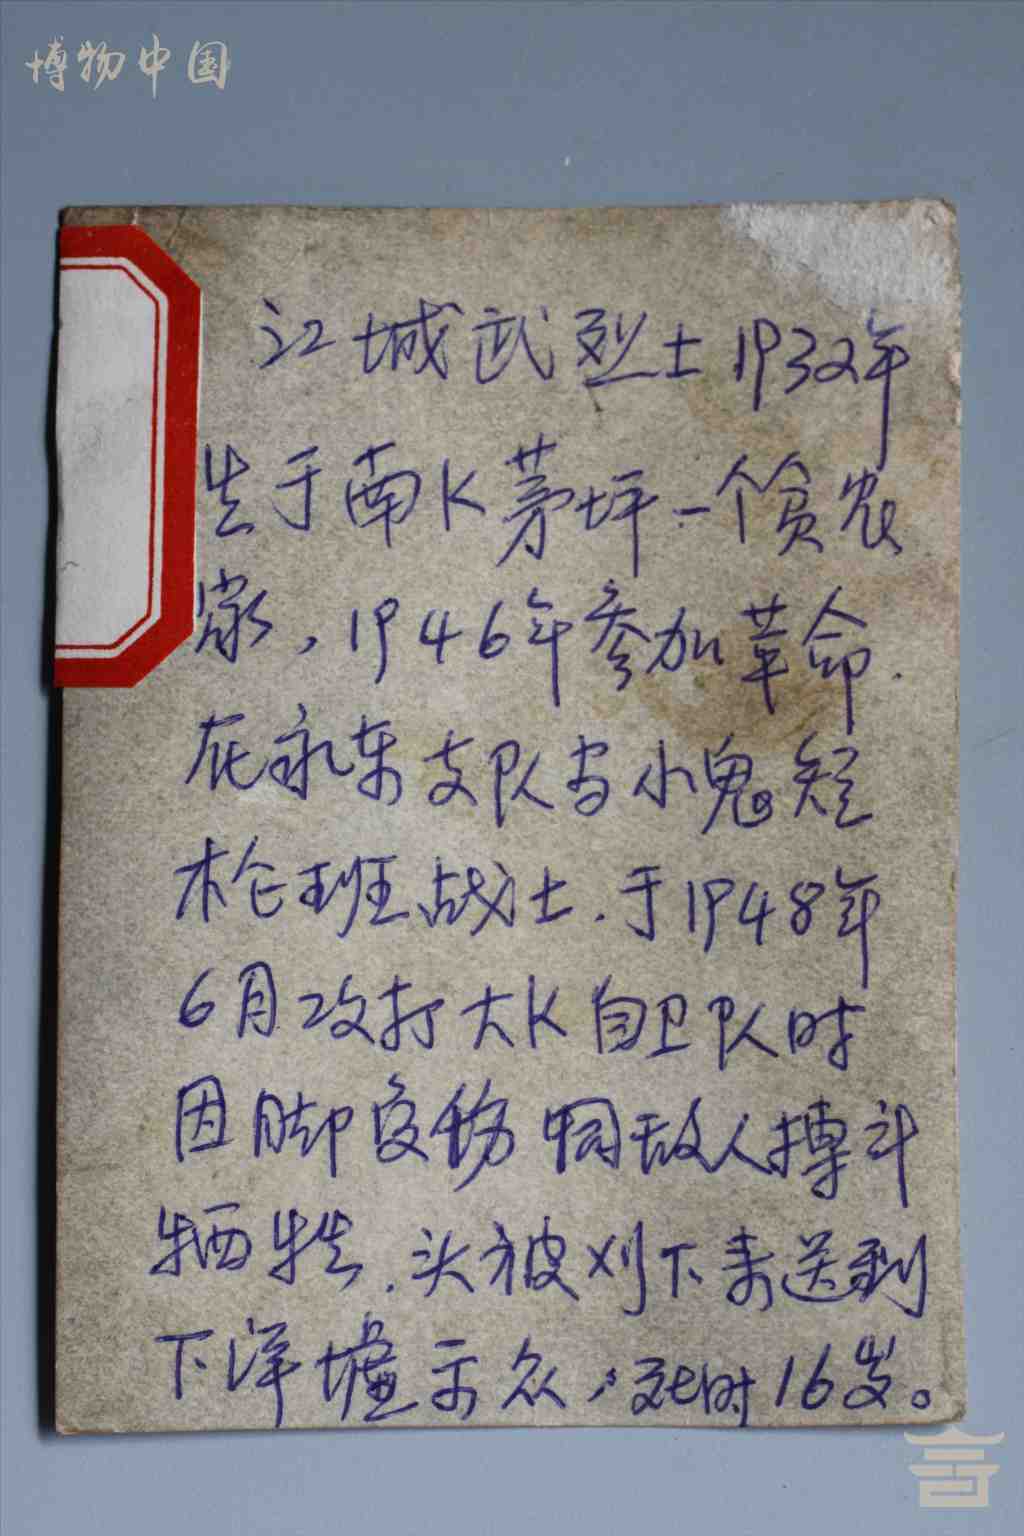 博物中国
江城武烈士1932年
生于南K茅坪一个贫农
家，1946年参加革命.
在永东支队当小鬼短
枪班战士.于1948年
6月攻打大K自卫队时
因脚受伤同敌人搏斗
牺牲.头被刈下来送到
下洋墟示众，死时16岁。